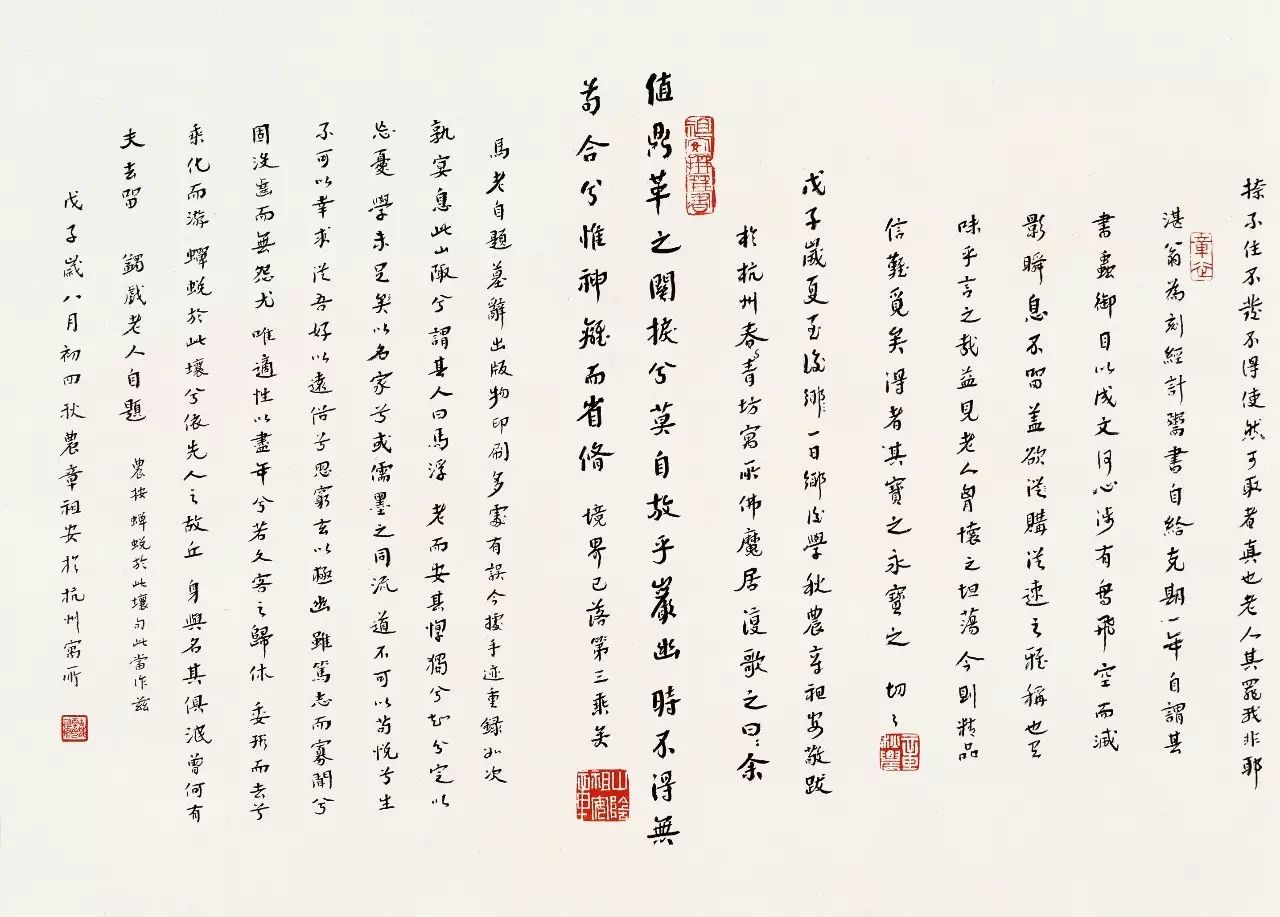 捺不住不發不得使然可取者真也老人其罪我非耶
湛翁為刻經計鬻書自給克期一年自謂其
書蟲御目以成文何心涉有鳥飛空而滅
影瞬息不留蓋欲從購從速之雅稱也足
味乎言之哉益見老人胷懷之坦蕩今則精品
信難覓矣得者其寶之永寶之 切々
戊子歲夏至後 一日鄉後學秋農章祖安敬跋
於杭州春青坊寓所佛魔居復歌之曰余
值鼎革之開捩兮莫自放乎巖幽時不得無
苟合兮惟神癯而省脩 境界已落第三乘矣
馬老自題墓辭出版物印刷多處有誤今據手迹重録如次
孰宴息此山陬兮謂其人曰馬浮 老而安其惸獨兮知兮定以
忘憂 學未足矣以名家兮或儒墨之同流 道不可以苟悅兮生
不可以幸求 從吾好以遠俗兮思窮玄以極幽 雖篤志而寡聞兮
固沒齒而無怨尤 唯適性以盡年兮若久客之歸休 委形而去兮
乘化而游 蟬蛻於此壤兮依先人之故丘 身與名其俱泯曾何有
夫去留 蠲戲老人自題 農按蟬蛻於此壤句此當作茲
戊子歲八月初四秋農章祖安於杭州寓所